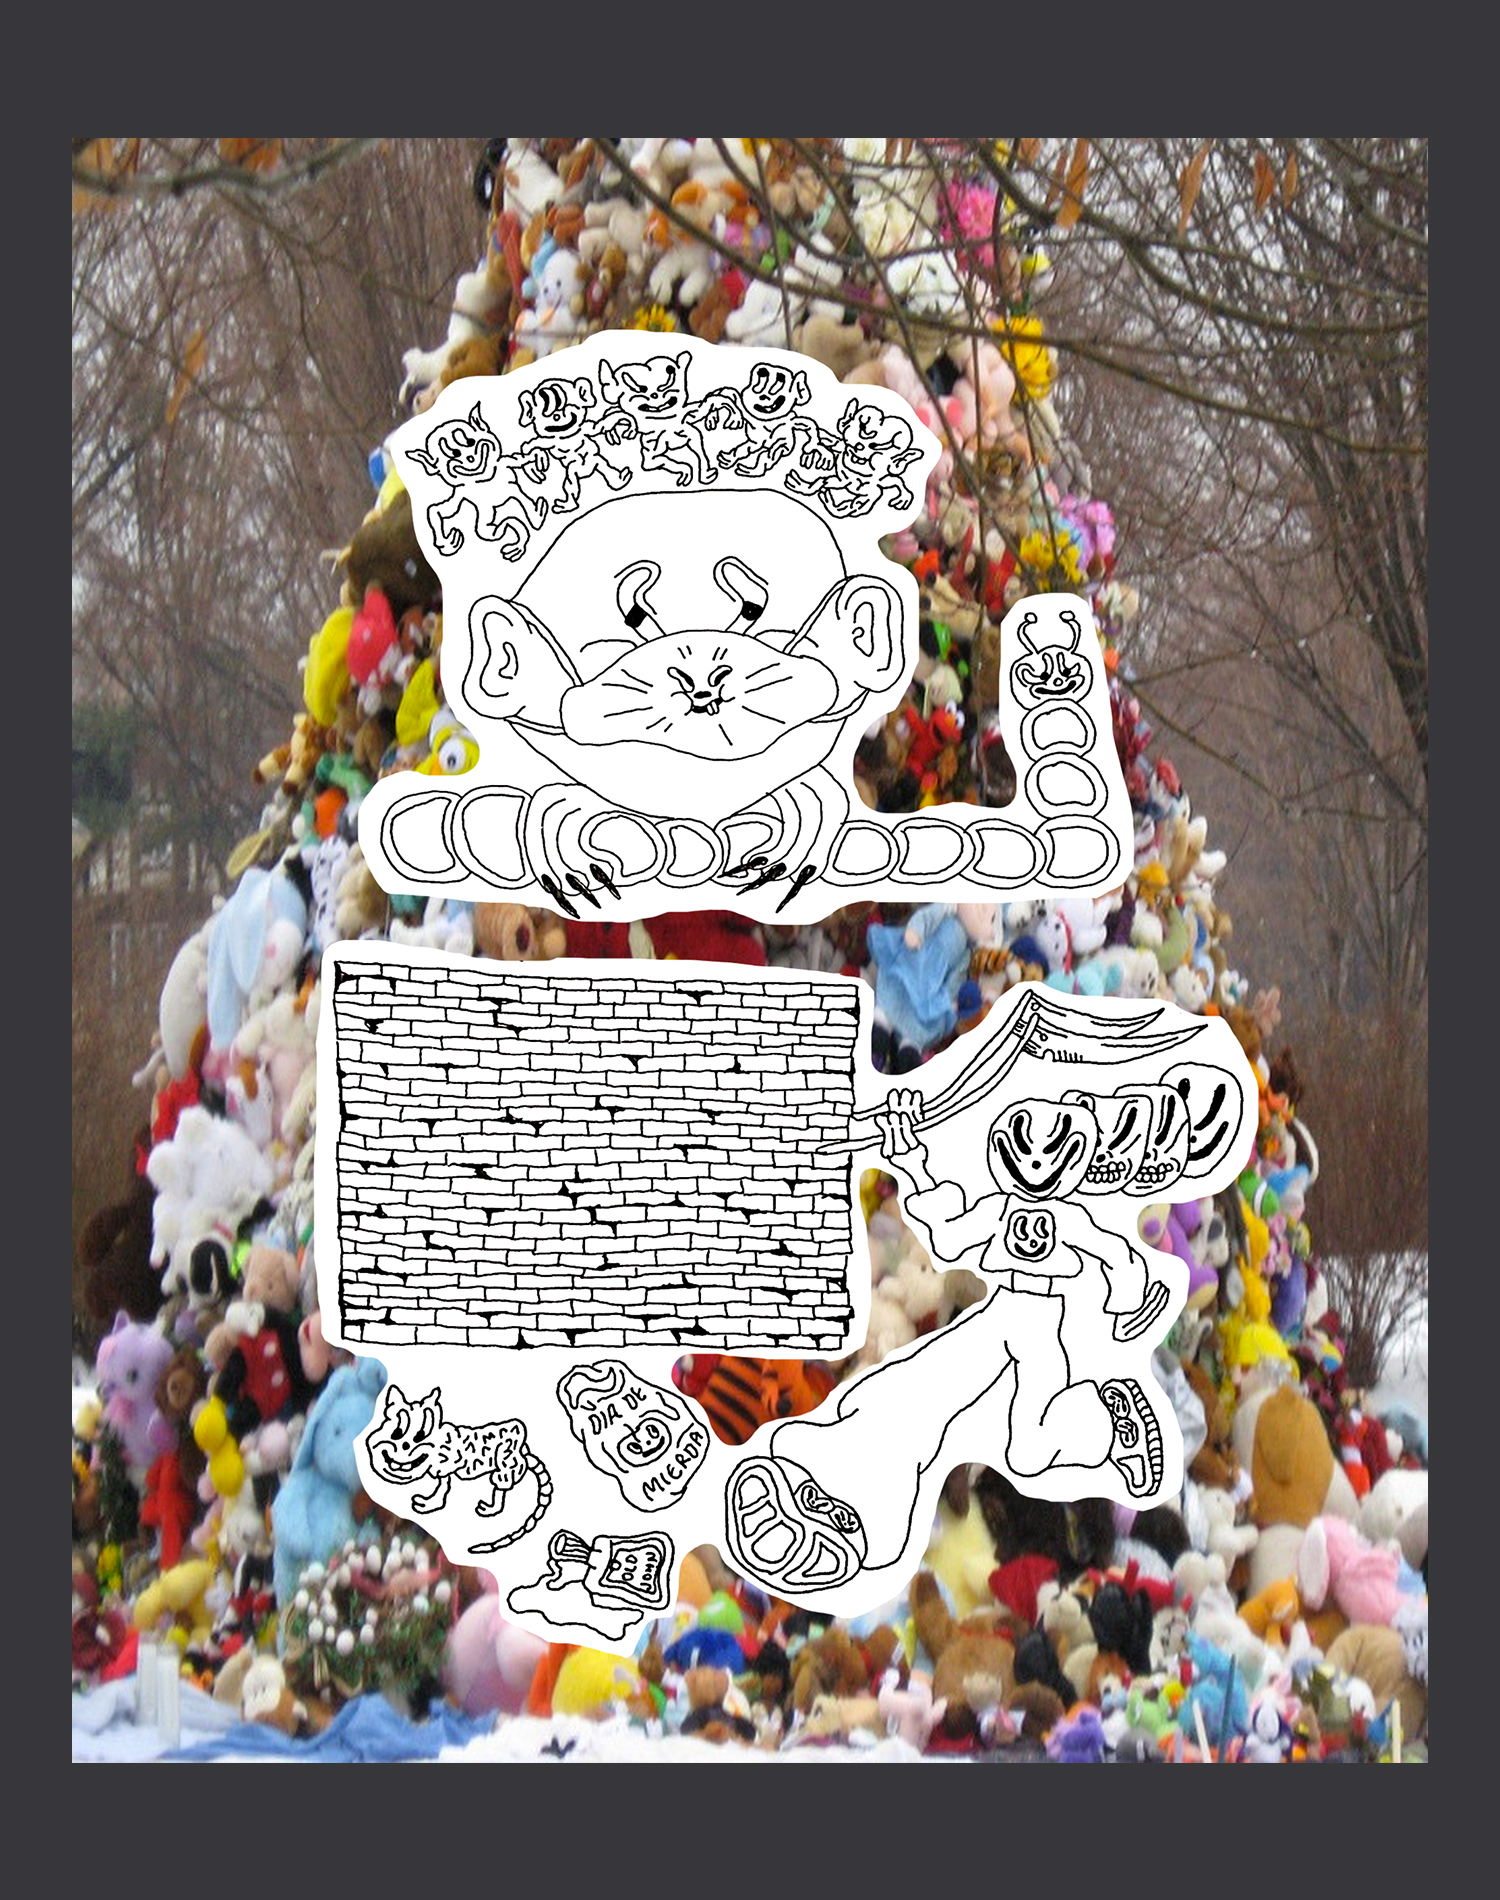 DIA DE
MIERDA
OLD
JOHN